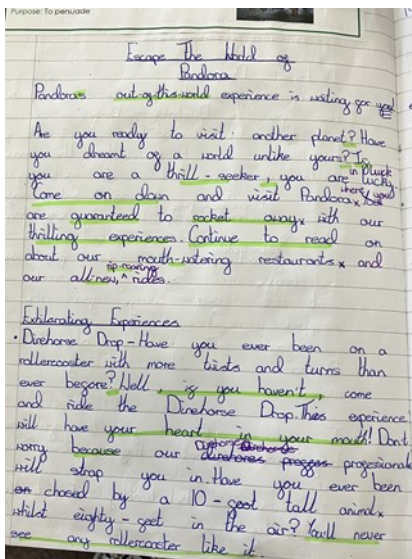 Purpose: To persuade
Escape The World of
Pandora
Pandoras out-of-this world experience is waiting for you!
Are you ready to visit another planet? Have
you dreamt of a world unlike yours? If
you are a thrill-seeker, you are in luck
Come on down and visit Pandora where you
are guaranteed to rocket away with our
thrilling experiences. Continue to read on
about our mouth-watering restaurants and
our all-new, rip-roaring rides.
Exhilarating Experiences
• Direhorse Drop - Have you ever been on a
rollercoaster with more twists and turns than
ever before? Well, if you haven't, come
and ride the Direhorse Drop. This experience
will have your heart in your mouth! Don't
worry because our Direhorse professionals
will strap you in. Have you ever been
chased by a 10-foot tall animal
whilst eighty-feet in the air? You'll never
see any rollercoaster like it